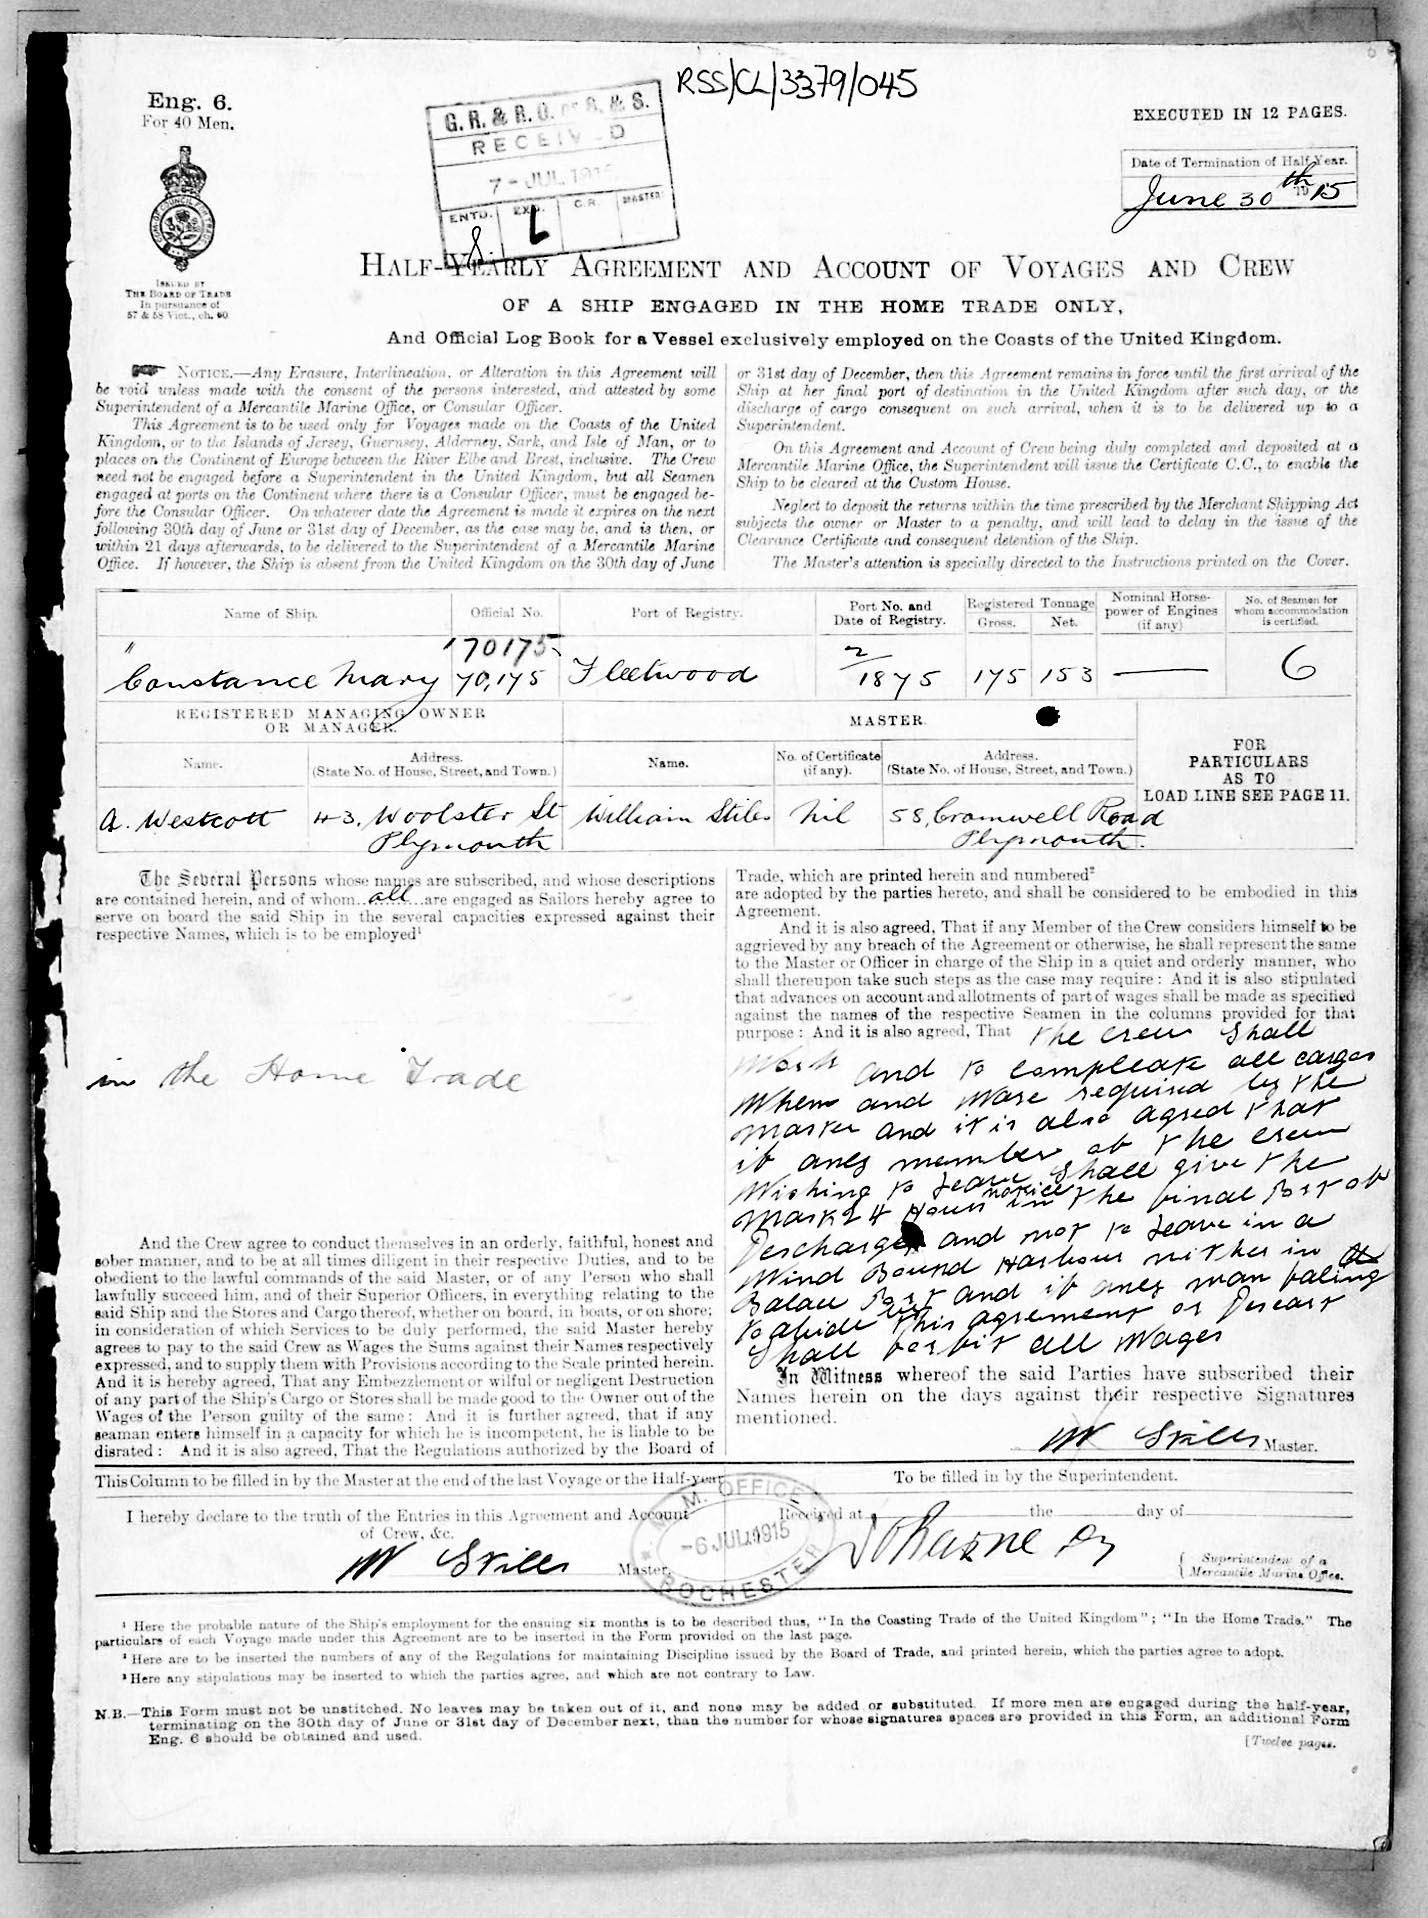 RSS/CL/3379/045
Eng. 6.
For 40 Men.
G. R. & R. O. OF S. & S.
RECEIVED
7 - JUL 191
ENTD. EXD. C.R. MASTER
8. L
EXECUTED IN 12 PAGES.
Date of Termination of Half-Year.
June 30th 1915
ISSUED BY
THE BOARD OF TRADE
In pursuance of
57 & 58 Vict., ch. 60
HALF-YEARLY AGREEMENT AND ACCOUNT OF VOYAGES AND CREW
OF A SHIP ENGAGED IN THE HOME TRADE ONLY,
And Official Log Book for a Vessel exclusively employed on the Coasts of the United Kingdom.
NOTICE.—Any Erasure, Interlineation, or Alteration in this Agreement will
be void unless made with the consent of the persons interested, and attested by some
Superintendent of a Mercantile Marine Office, or Consular Officer.
This Agreement is to be used only for Voyages made on the Coasts of the United
Kingdom, or to the Islands of Jersey, Guernsey, Alderney, Sark, and Isle of Man, or to
places on the Continent of Europe between the River Elbe and Brest, inclusive. The Crew
need not be engaged before a Superintendent in the United Kingdom, but all Seamen
engaged at ports on the Continent where there is a Consular Officer, must be engaged be-
fore the Consular Officer. On whatever date the Agreement is made it expires on the next
following 30th day of June or 31st day of December, as the case may be, and is then, or
within 21 days afterwards, to be delivered to the Superintendent of a Mercantile Marine
Office. If however, the Ship is absent from the United Kingdom on the 30th day of June
or 31st day of December, then this Agreement remains in force until the first arrival of the
Ship at her final port of destination in the United Kingdom after such day, or the
discharge of cargo consequent on such arrival, when it is to be delivered up to a
Superintendent.
On this Agreement and Account of Crew being duly completed and deposited at a
Mercantile Marine Office, the Superintendent will issue the Certificate C.C., to enable the
Ship to be cleared at the Custom House.
Neglect to deposit the returns within the time prescribed by the Merchant Shipping Act
subjects the owner or Master to a penalty, and will lead to delay in the issue of the
Clearance Certificate and consequent detention of the Ship.
The Master's attention is specially directed to the Instructions printed on the Cover.
Name of Ship. Official No. Port of Registry. Port No. and Date of Registry. Registered Tonnage Gross. Net. Nominal Horse-power of Engines (if any) No. of Seamen for whom accommodation is certified.
170175
"Constance Mary 70,175 Fleetwood 2/1875 175 153 — 6
REGISTERED MANAGING OWNER
OR MANAGER.
MASTER.
FOR
PARTICULARS
AS TO
LOAD LINE SEE PAGE 11.
Name. Address. (State No. of House, Street, and Town.) Name. No. of Certificate (if any). Address. (State No. of House, Street, and Town.)
A. Westcott 43, Woolster St William Stiles Nil 58, Cromwell Road
Plymouth Plymouth.
The Several Persons whose names are subscribed, and whose descriptions
are contained herein, and of whom all are engaged as Sailors hereby agree to
serve on board the said Ship in the several capacities expressed against their
respective Names, which is to be employed¹
in the Home Trade
And the Crew agree to conduct themselves in an orderly, faithful, honest and
sober manner, and to be at all times diligent in their respective Duties, and to be
obedient to the lawful commands of the said Master, or of any Person who shall
lawfully succeed him, and of their Superior Officers, in everything relating to the
said Ship and the Stores and Cargo thereof, whether on board, in boats, or on shore;
in consideration of which Services to be duly performed, the said Master hereby
agrees to pay to the said Crew as Wages the Sums against their Names respectively
expressed, and to supply them with Provisions according to the Scale printed herein.
And it is hereby agreed, That any Embezzlement or wilful or negligent Destruction
of any part of the Ship's Cargo or Stores shall be made good to the Owner out of the
Wages of the Person guilty of the same: And it is further agreed, that if any
seaman enters himself in a capacity for which he is incompetent, he is liable to be
disrated: And it is also agreed, That the Regulations authorized by the Board of
Trade, which are printed herein and numbered²
are adopted by the parties hereto, and shall be considered to be embodied in this
Agreement.
And it is also agreed, That if any Member of the Crew considers himself to be
aggrieved by any breach of the Agreement or otherwise, he shall represent the same
to the Master or Officer in charge of the Ship in a quiet and orderly manner, who
shall thereupon take such steps as the case may require: And it is also stipulated
that advances on account and allotments of part of wages shall be made as specified
against the names of the respective Seamen in the columns provided for that
purpose: And it is also agreed, That the crew shall
Work and to compleate all cargos
When and Ware required by the
Master and it is also agred that
if aney member of the crew
Wishing to Leave shall give the
Mast 24 Hours notice in the final Port of
Descharge and not to Leave in a
Wind Bound Harbour nither in
Balace Port and if aney man faling
to abide by this agreement or Deseart
Shall forfit all Wages
In Witness whereof the said Parties have subscribed their
Names herein on the days against their respective Signatures
mentioned.
W Stiles Master.
This Column to be filled in by the Master at the end of the last Voyage or the Half-year.
To be filled in by the Superintendent.
I hereby declare to the truth of the Entries in this Agreement and Account
of Crew, &c.
W Stiles Master.
M. M. OFFICE
-6 JUL 1915
ROCHESTER
Received at the day of
Superintendent of a
Mercantile Marine Office.
¹ Here the probable nature of the Ship's employment for the ensuing six months is to be described thus, "In the Coasting Trade of the United Kingdom"; "In the Home Trade." The
particulars of each Voyage made under this Agreement are to be inserted in the Form provided on the last page.
² Here are to be inserted the numbers of any of the Regulations for maintaining Discipline issued by the Board of Trade, and printed herein, which the parties agree to adopt.
³ Here any stipulations may be inserted to which the parties agree, and which are not contrary to Law.
N.B.—This Form must not be unstitched. No leaves may be taken out of it, and none may be added or substituted. If more men are engaged during the half-year,
terminating on the 30th day of June or 31st day of December next, than the number for whose signatures spaces are provided in this Form, an additional Form
Eng. 6 should be obtained and used.
[Twelve pages.